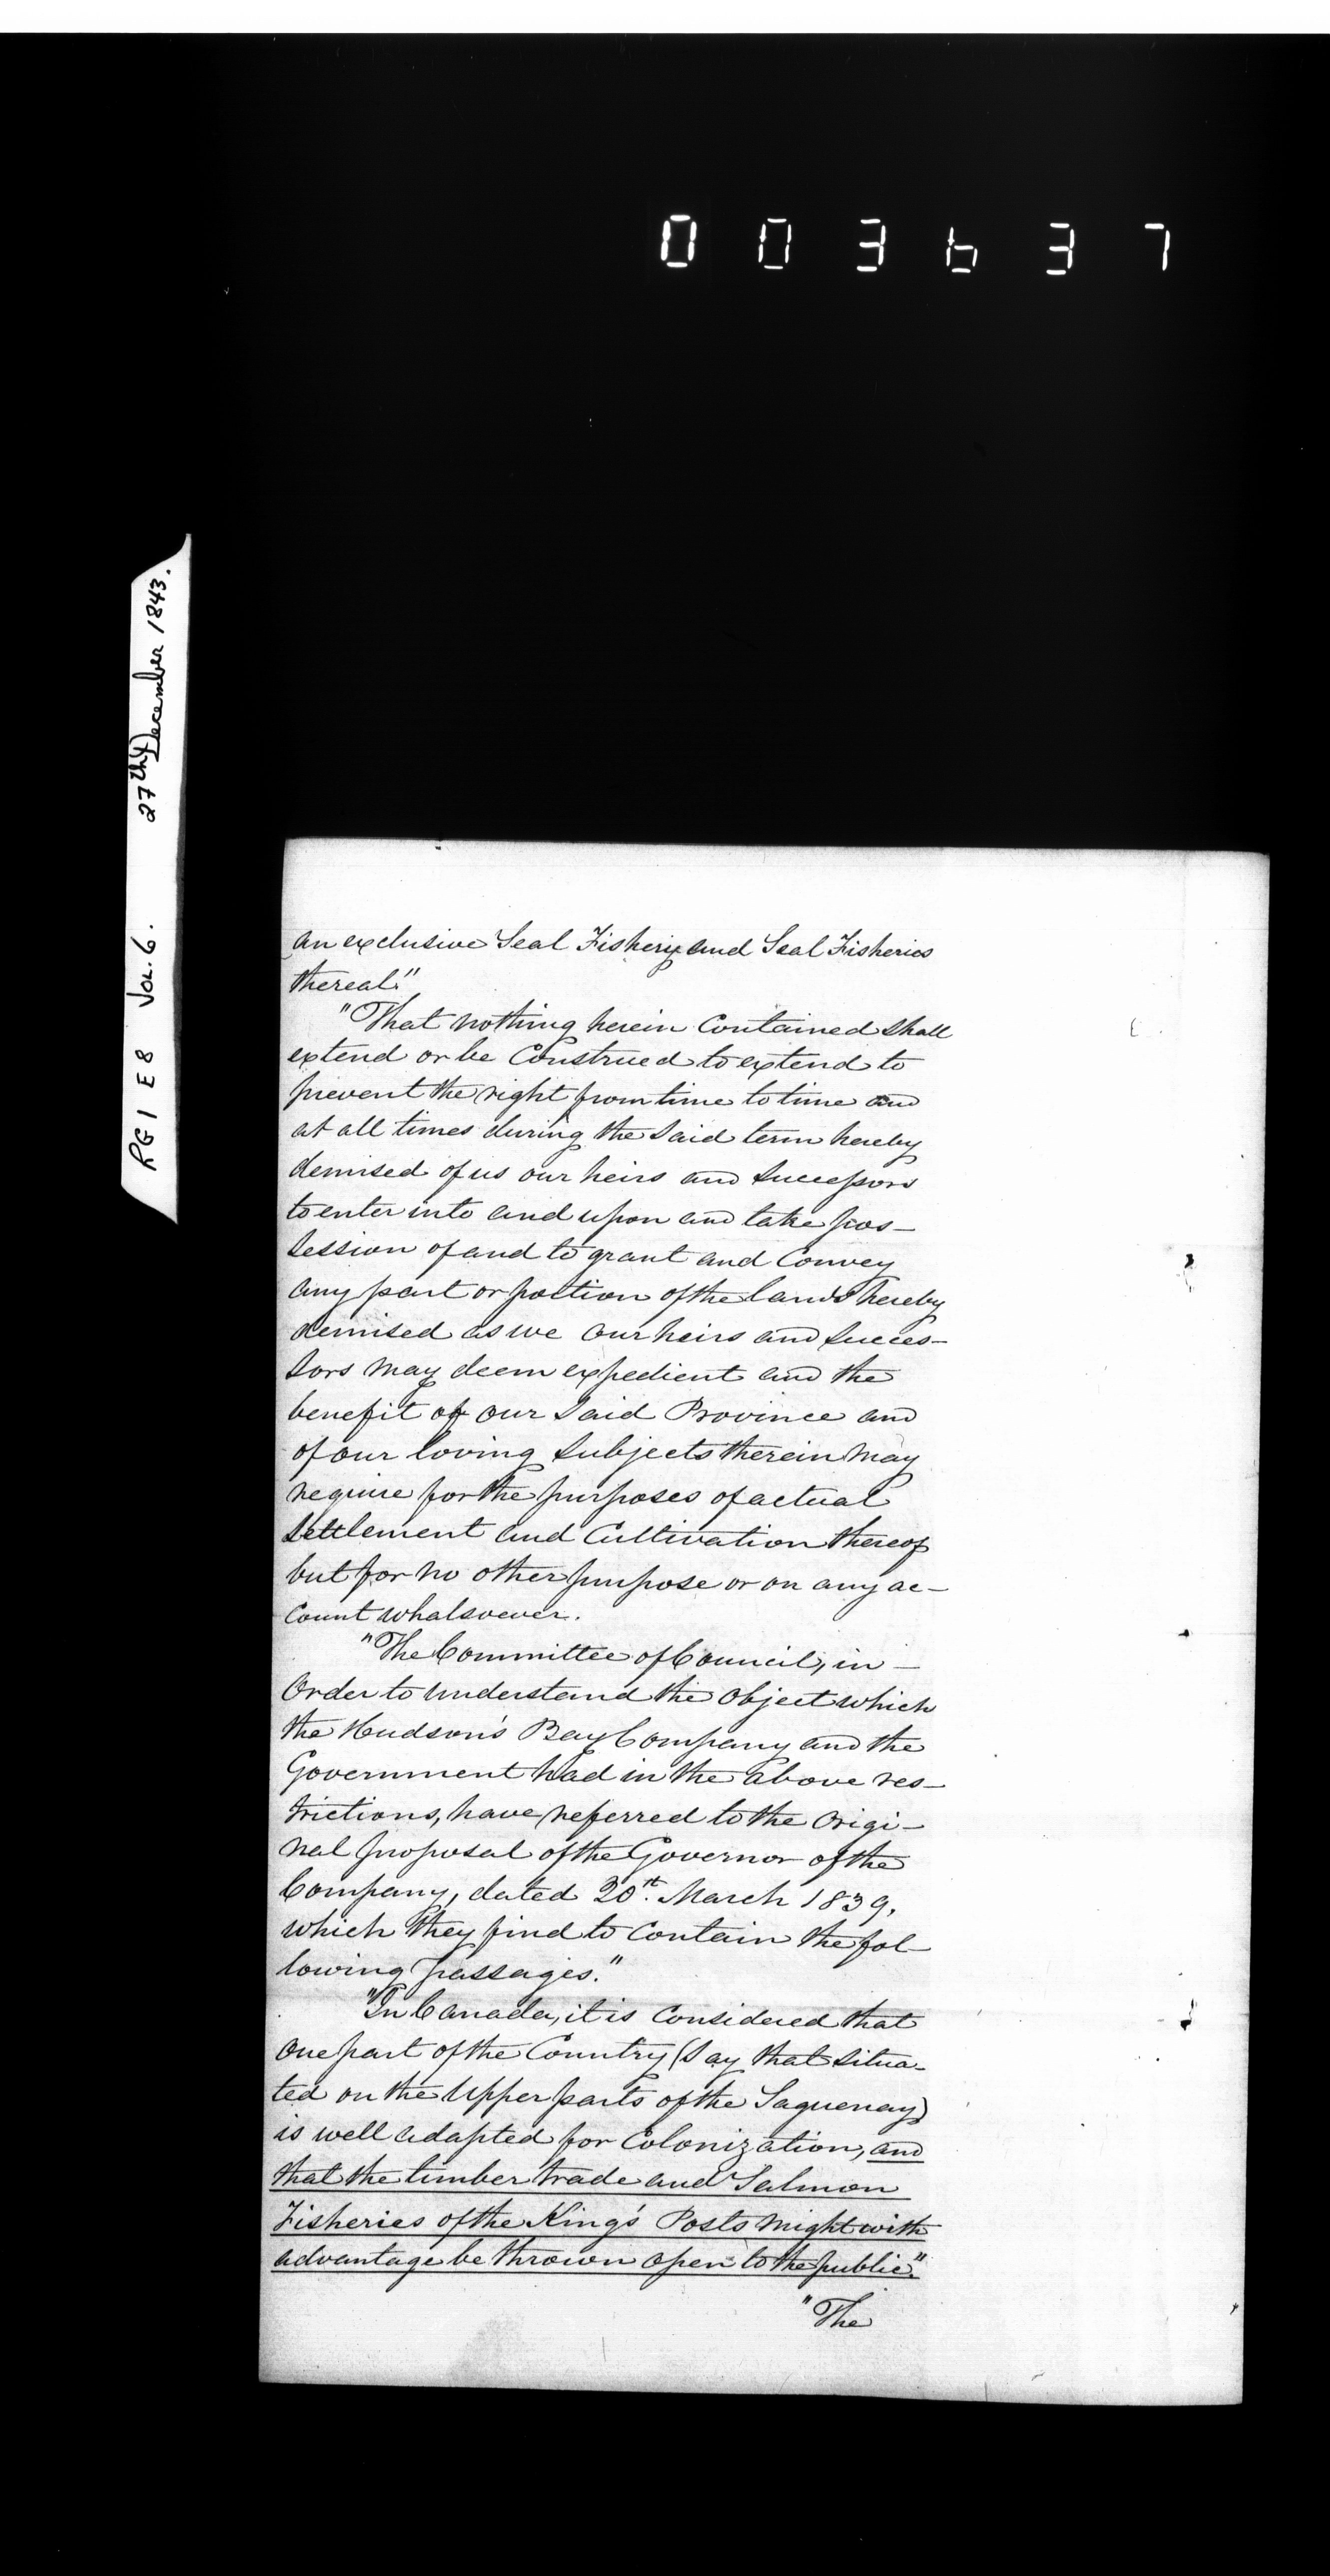 003637
RG 1 E8 Vol. 6. 27th December 1843.
an exclusive Seal Fishery and Seal Fisheries
thereat."
"That nothing herein Contained shall
extend or be Construed to extend to
prevent the right from time to time and
at all times during the said term hereby
demised of us our heirs and Successors
to enter into and upon and take pos-
session of and to grant and Convey
any part or portion of the lands hereby
demised as we our heirs and Succes-
sors may deem expedient and the
benefit of our said Province and
of our loving Subjects therein may
require for the purposes of actual
Settlement and Cultivation thereof
but for no other purpose or on any ac-
count whatsoever.
"The Committee of Council, in-
Order to understand the Object which
the Hudson's Bay Company and the
Government had in the above res-
trictions, have referred to the origi-
nal proposal of the Governor of the
Company, dated 20th. March 1839,
which they find to Contain the fol-
lowing passages."
"In Canada, it is Considered that
one part of the Country (Say that Situa-
ted on the Upper parts of the Saguenay)
is well adapted for Colonization, and
that the timber trade and Salmon
Fisheries of the King's Posts might with
advantage be thrown open to the public."
"The